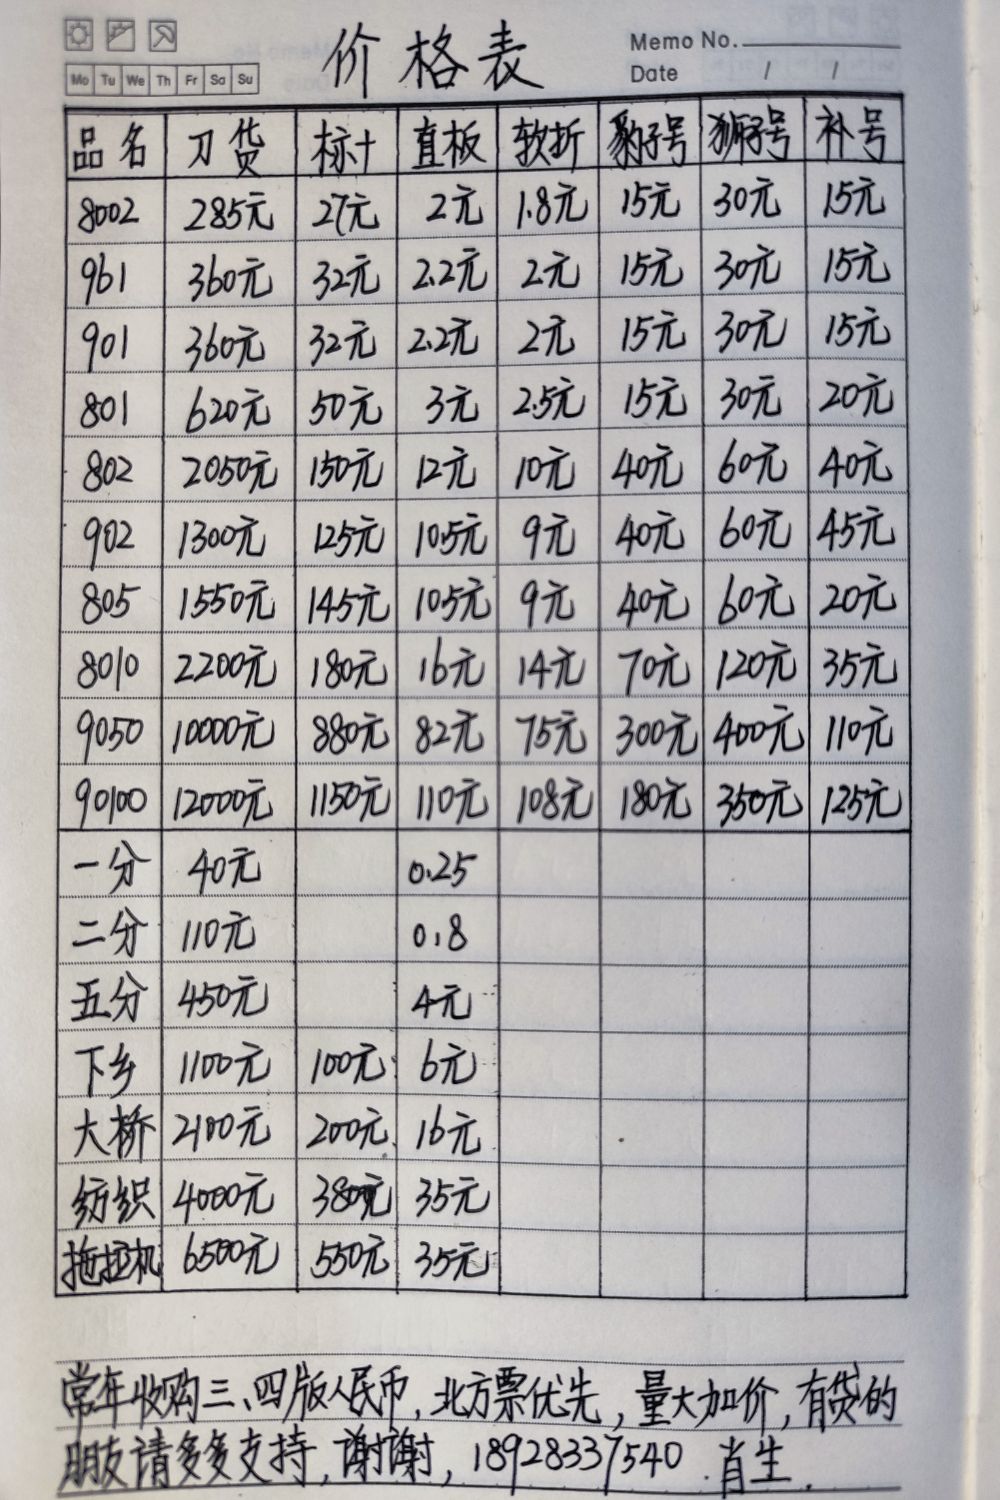 价格表
Memo No.
Mo Tu We Th Fr Sa Su
Date / /
品名 刀货 标十 直板 软折 豹子号 狮子号 补号
8002 285元 27元 2元 1.8元 15元 30元 15元
961 360元 32元 2.2元 2元 15元 30元 15元
901 360元 32元 2.2元 2元 15元 30元 15元
801 620元 50元 3元 2.5元 15元 30元 20元
802 2050元 150元 12元 10元 40元 60元 40元
902 1300元 125元 10.5元 9元 40元 60元 45元
805 1550元 145元 10.5元 9元 40元 60元 20元
8010 2200元 180元 16元 14元 70元 120元 35元
9050 10000元 880元 82元 75元 300元 400元 110元
90100 12000元 1150元 110元 108元 180元 350元 125元
一分 40元 0.25
二分 110元 0.8
五分 450元 4元
下乡 1100元 100元 6元
大桥 2100元 200元 16元
纺织 4000元 380元 35元
拖拉机 6500元 550元 35元
常年收购三、四版人民币,北方票优先,量大加价,有货的
朋友请多多支持,谢谢,18928337540 肖生.